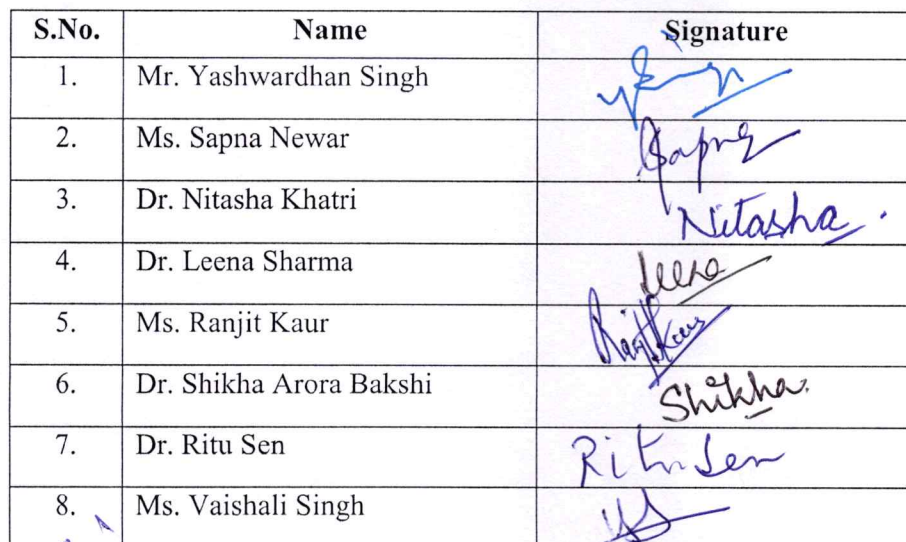 S.No. Name Signature
1. Mr. Yashwardhan Singh
2. Ms. Sapna Newar Sapna
3. Dr. Nitasha Khatri Nitasha.
4. Dr. Leena Sharma Leena
5. Ms. Ranjit Kaur Ranjit Kaur
6. Dr. Shikha Arora Bakshi Shikha
7. Dr. Ritu Sen Ritu Sen
8. Ms. Vaishali Singh